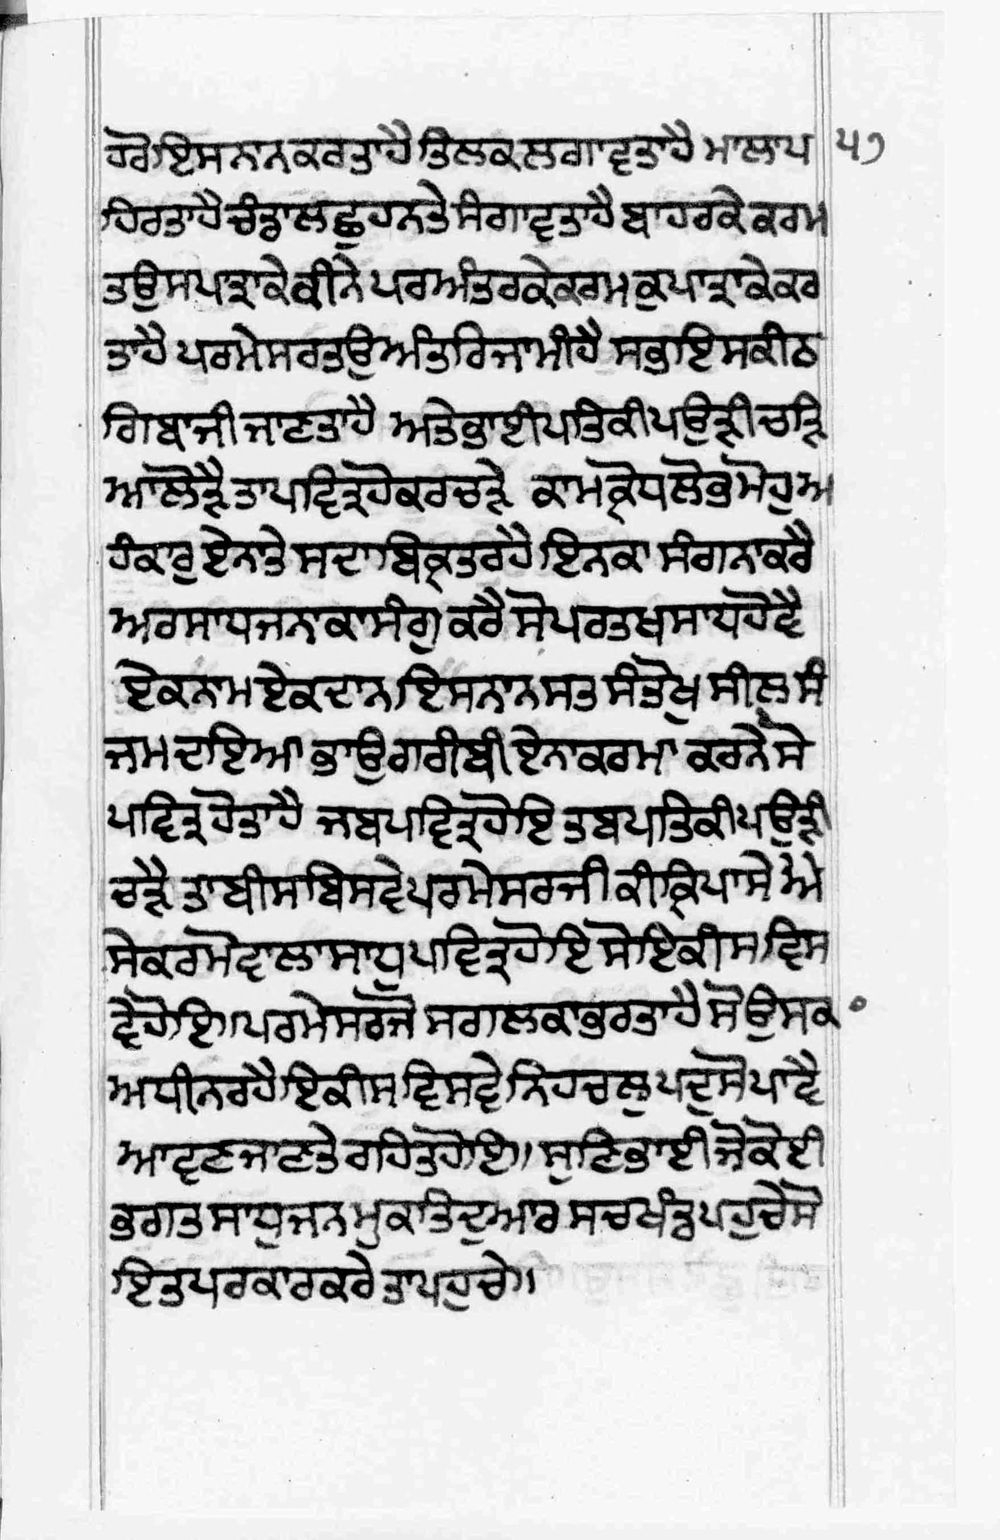 ਹਰੋ ਇਸਨਾਨ ਕਰਤਾ ਹੈ ਤਿਲਕ ਲਗਾਵਤਾ ਹੈ ਮਾਲਾ ਪ ੫੭
ਹਿਰਤਾ ਹੈ ਚੰਡਾਲ ਛੁਹਨ ਤੇ ਸੰਗਾਵਤਾ ਹੈ ਬਾਹਰ ਕੇ ਕਰਮ
ਤਉ ਸਪੜਾਕੇ ਕੀਨੇ ਪਰ ਅੰਤਰ ਕੇ ਕਰਮ ਕੁਪਾੜਾਕੇ ਕਰ
ਤਾ ਹੈ ਪਰਮੇਸਰ ਤਉ ਅੰਤਰਿਜਾਮੀ ਹੈ ਸਭੁ ਇਸ ਕੀ ਠ
ਗਿਬਾਜੀ ਜਾਣਤਾ ਹੈ ਅਤੇ ਭਾਈ ਪਤਿ ਕੀ ਪਉੜੀ ਚੜਿ
ਆ ਲੋੜੈ ਤਾ ਪਵਿਤ੍ਰ ਹੋਕਰ ਚੜੇ ਕਾਮ ਕ੍ਰੋਧ ਲੋਭੁ ਮੋਹੁ ਅ
ਹੰਕਾਰੁ ਏਨਾ ਤੇ ਸਦਾ ਬਿਕ੍ਰਤ ਰਹੈ ਇਨ ਕਾ ਸੰਗ ਨਾ ਕਰੈ
ਅਰ ਸਾਧ ਜਨਾ ਕਾ ਸੰਗੁ ਕਰੈ ਸੋ ਪਰਤਖ ਸਾਧ ਹੋਵੈ
ਏਕ ਨਾਮ ਏਕ ਦਾਨ ਇਸਨਾਨ ਸਤ ਸੰਤੋਖੁ ਸੀਲੁ ਸੰ
ਜਮ ਦਇਆ ਭਾਉ ਗਰੀਬੀ ਏਨਾ ਕਰਮਾ ਕਰਨੇ ਸੇ
ਪਵਿਤ੍ਰ ਹੋਤਾ ਹੈ ਜਬ ਪਵਿਤ੍ਰ ਹੋਇ ਤਬ ਪਤਿ ਕੀ ਪਉੜੀ
ਚੜੈ ਤਾ ਬੀਸ ਬਿਸਵੇ ਪਰਮੇਸਰ ਜੀ ਕੀ ਕ੍ਰਿਪਾ ਸੇ ਐ
ਸੇ ਕਰਮੋ ਵਾਲਾ ਸਾਧੁ ਪਵਿਤ੍ਰ ਹੋਇ ਸੋ ਇਕੀਸ ਵਿਸ
ਵੇ ਹੋਇ॥ ਪਰਮੇਸਰ ਜੋ ਸਗਲ ਕਾ ਭਰਤਾ ਹੈ ਸੋ ਉਸ ਕ
ਅਧੀਨ ਰਹੈ ਇਕੀਸ ਵਿਸਵੇ ਨਿਹਚਲੁ ਪਦੁ ਸੋ ਪਾਵੈ
ਆਵਣ ਜਾਣ ਤੇ ਰਹਿਤ ਹੋਇ॥ ਸੁਣਿ ਭਾਈ ਜੋ ਕੋਈ
ਭਗਤ ਸਾਧੁ ਜਨ ਮੁਕਤਿ ਦੁਆਰ ਸਚਖੰਡ ਪਹੁਚੈ ਸੋ
ਇਤ ਪਰਕਾਰ ਕਰੇ ਤਾ ਪਹੁਚੇ॥